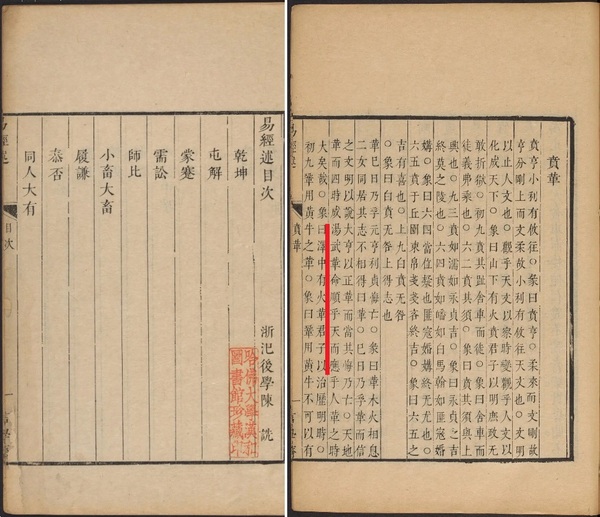 易經述目次
浙汜後學陳 詵
乾坤
屯解
蒙蹇
需訟
師比
小畜大畜
履謙
泰否
同人大有
易經述
目次
哈佛大學漢和
圖書館珍藏印
賁革
賁亨小利有攸往○彖曰賁亨○柔來而文剛故
亨分剛上而文柔故小利有攸往天文也○文明
以止人文也○觀乎天文以察時變觀乎人文以
化成天下○象曰山下有火賁君子以明庶政无
敢折獄○初九賁其趾舍車而徒○象曰舍車而
徒義弗乘也○六二賁其須○象曰賁其須與上
興也○九三賁如濡如永貞吉○象曰永貞之吉
終莫之陵也○六四賁如皤如白馬翰如匪寇婚
媾○象曰六四當位疑也匪寇婚媾終无尤也○
六五賁于丘園束帛戔戔吝終吉○象曰六五之
吉有喜也○上九白賁无咎
○象曰白賁无咎上得志也
革巳日乃孚元亨利貞悔亡○彖曰革水火相息
二女同居其志不相得曰革○巳日乃孚革而信
之文明以說大亨以正革而當其悔乃亡○天地
革而四時成湯武革命順乎天而應乎人革之時
大矣哉○象曰澤中有火革君子以治厯明時○
初九鞏用黃牛之革○象曰鞏用黃牛不可以有
易經述
賁革